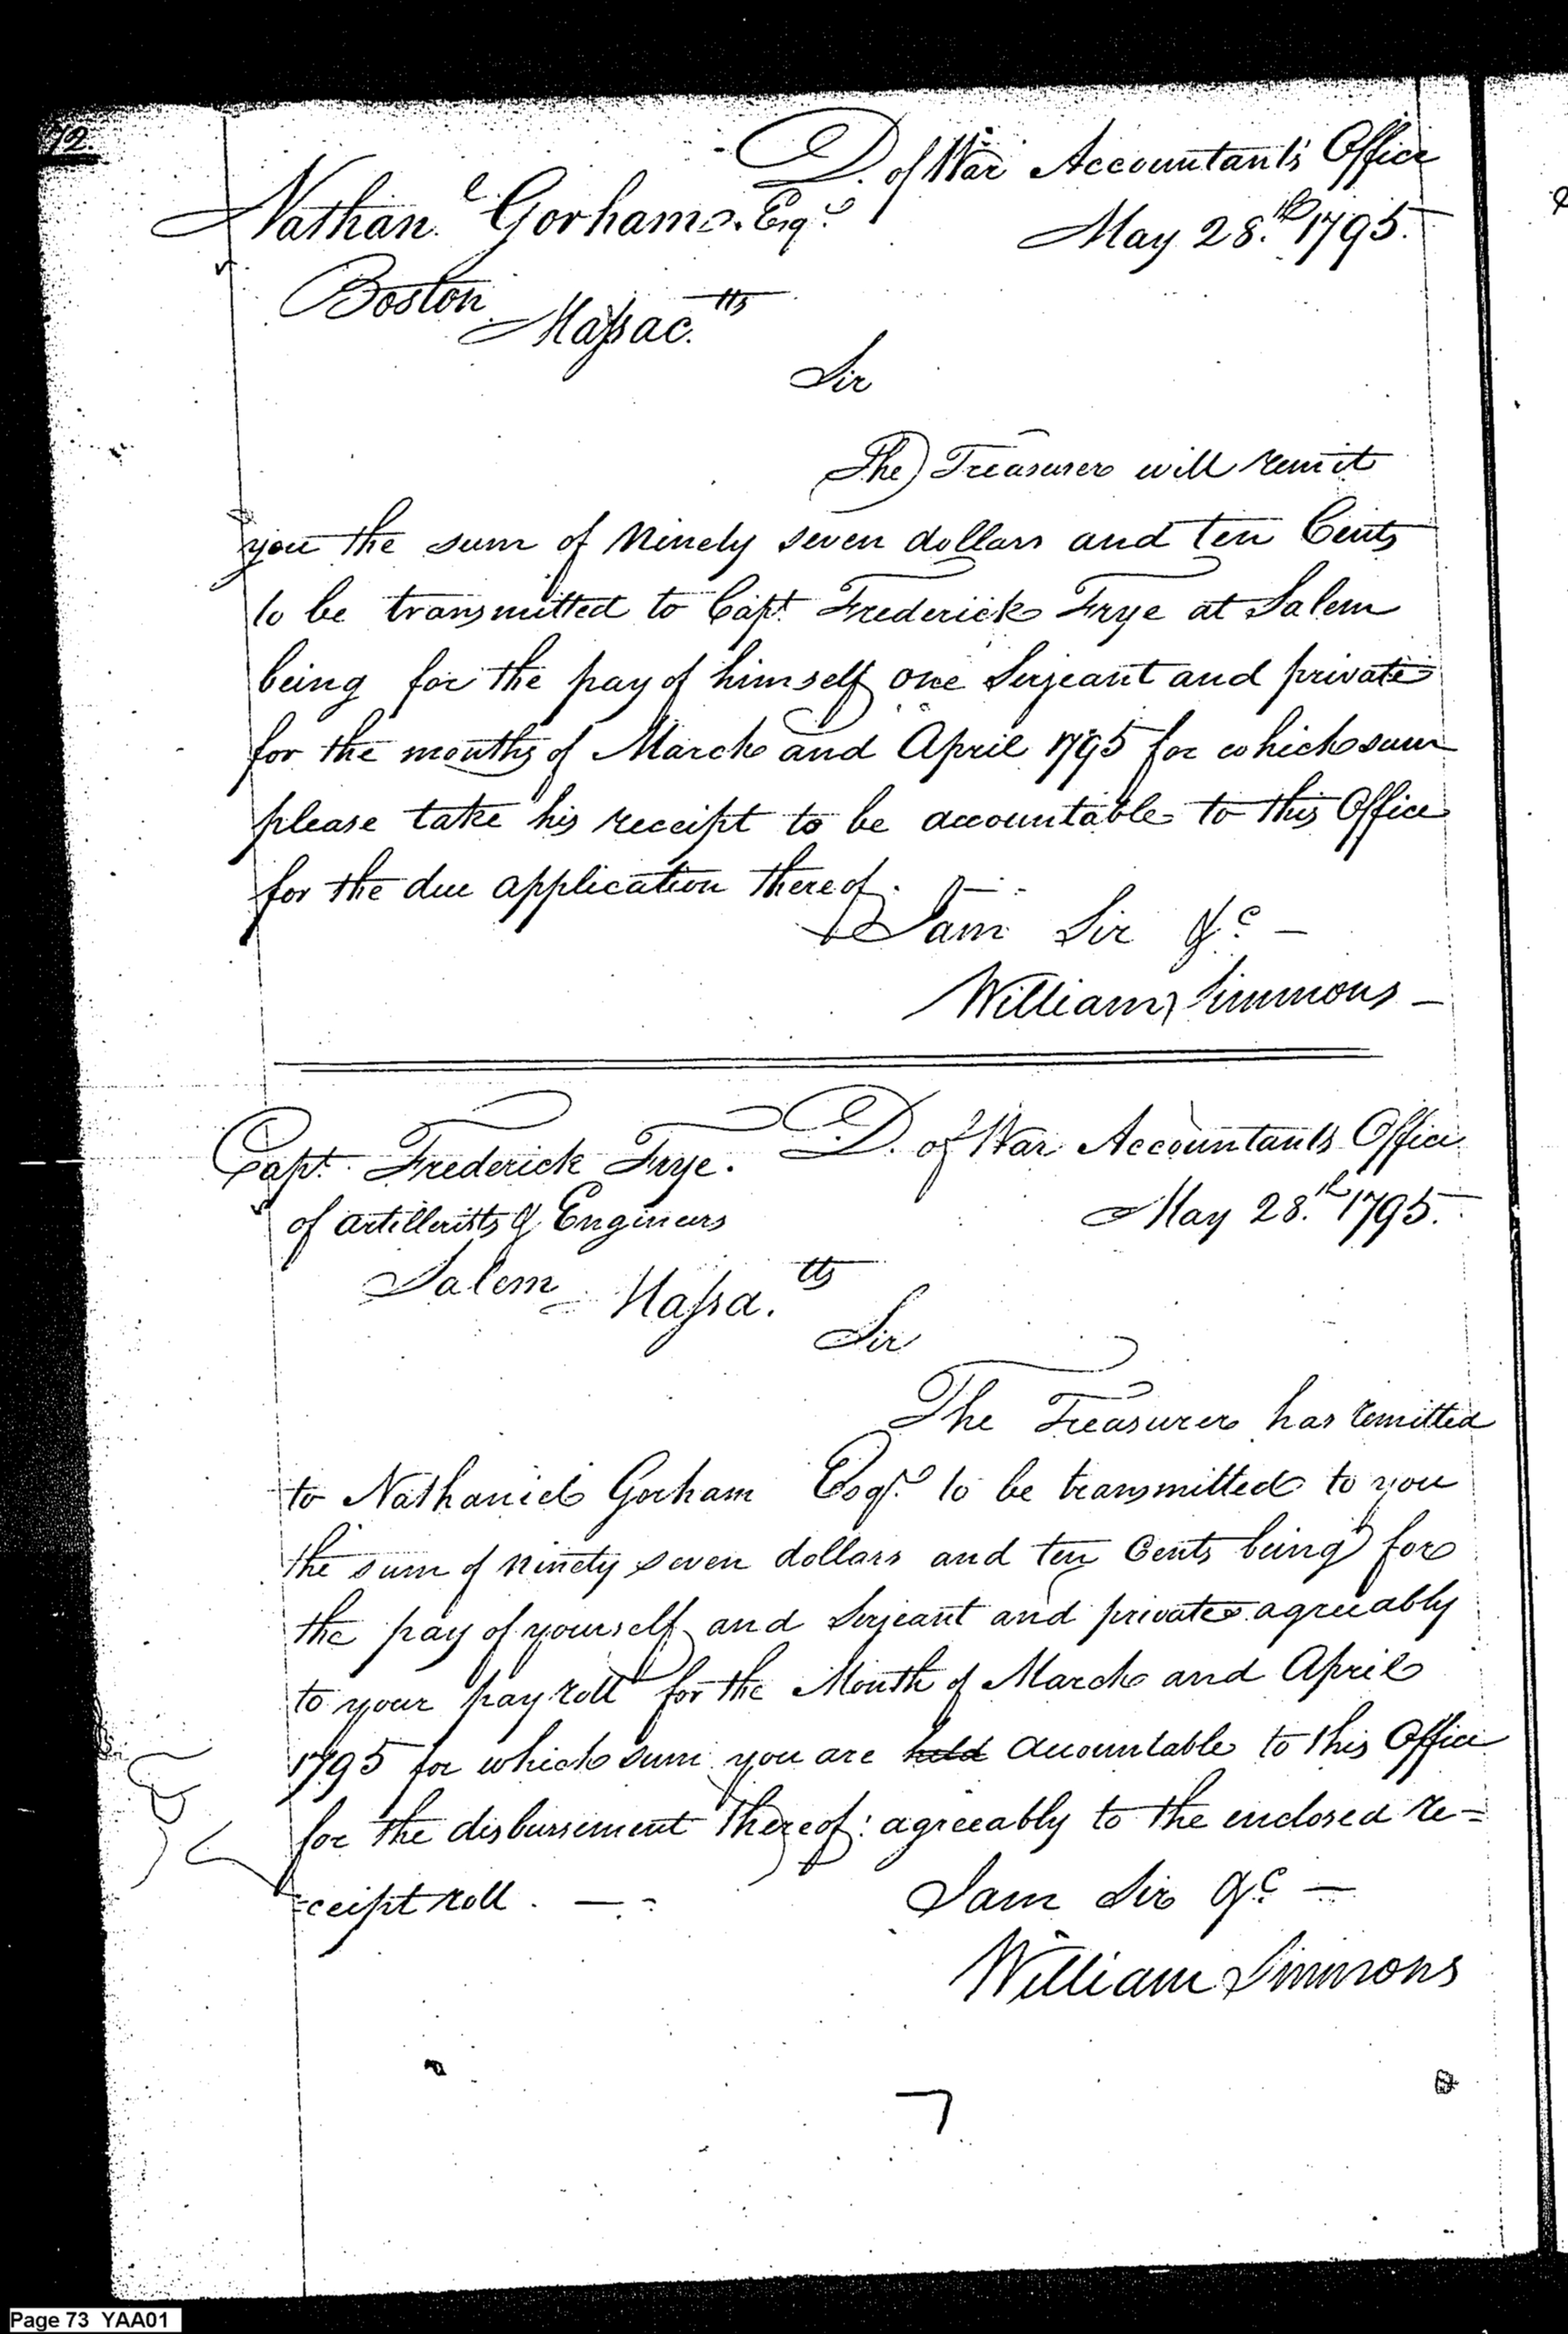 72.
D. of War Accountants Office
Nathan.l Gorham Esqr
May 28.th 1795.
Boston
Massac.tts
Sir
The Treasurer will remit
you the sum of Ninety seven dollars and ten Cents
to be transmitted to Capt. Frederick Frye at Salem
being for the pay of himself one Serjeant and private
for the months of March and April 1795 for which sum
please take his receipt to be accountable to this Office
for the due application thereof.
I am Sir &c —
William Simmons —
Capt. Frederick Frye. D. of War Accountants Office
of artillerists & Engineers
May 28.th 1795.
Salem Massa.tts
Sir
The Treasurer has remitted
to Nathaniel Gorham Esqr. to be transmitted to you
the sum of ninety seven dollars and ten Cents being for
the pay of yourself and Serjeant and privates agreeably
to your pay roll for the Month of March and April
1795 for which sum you are held accountable to this Office
for the disbursement thereof: agreeably to the enclosed re=
=ceipt roll. —
I am Sir &c —
William Simmons
Page 73 YAA01